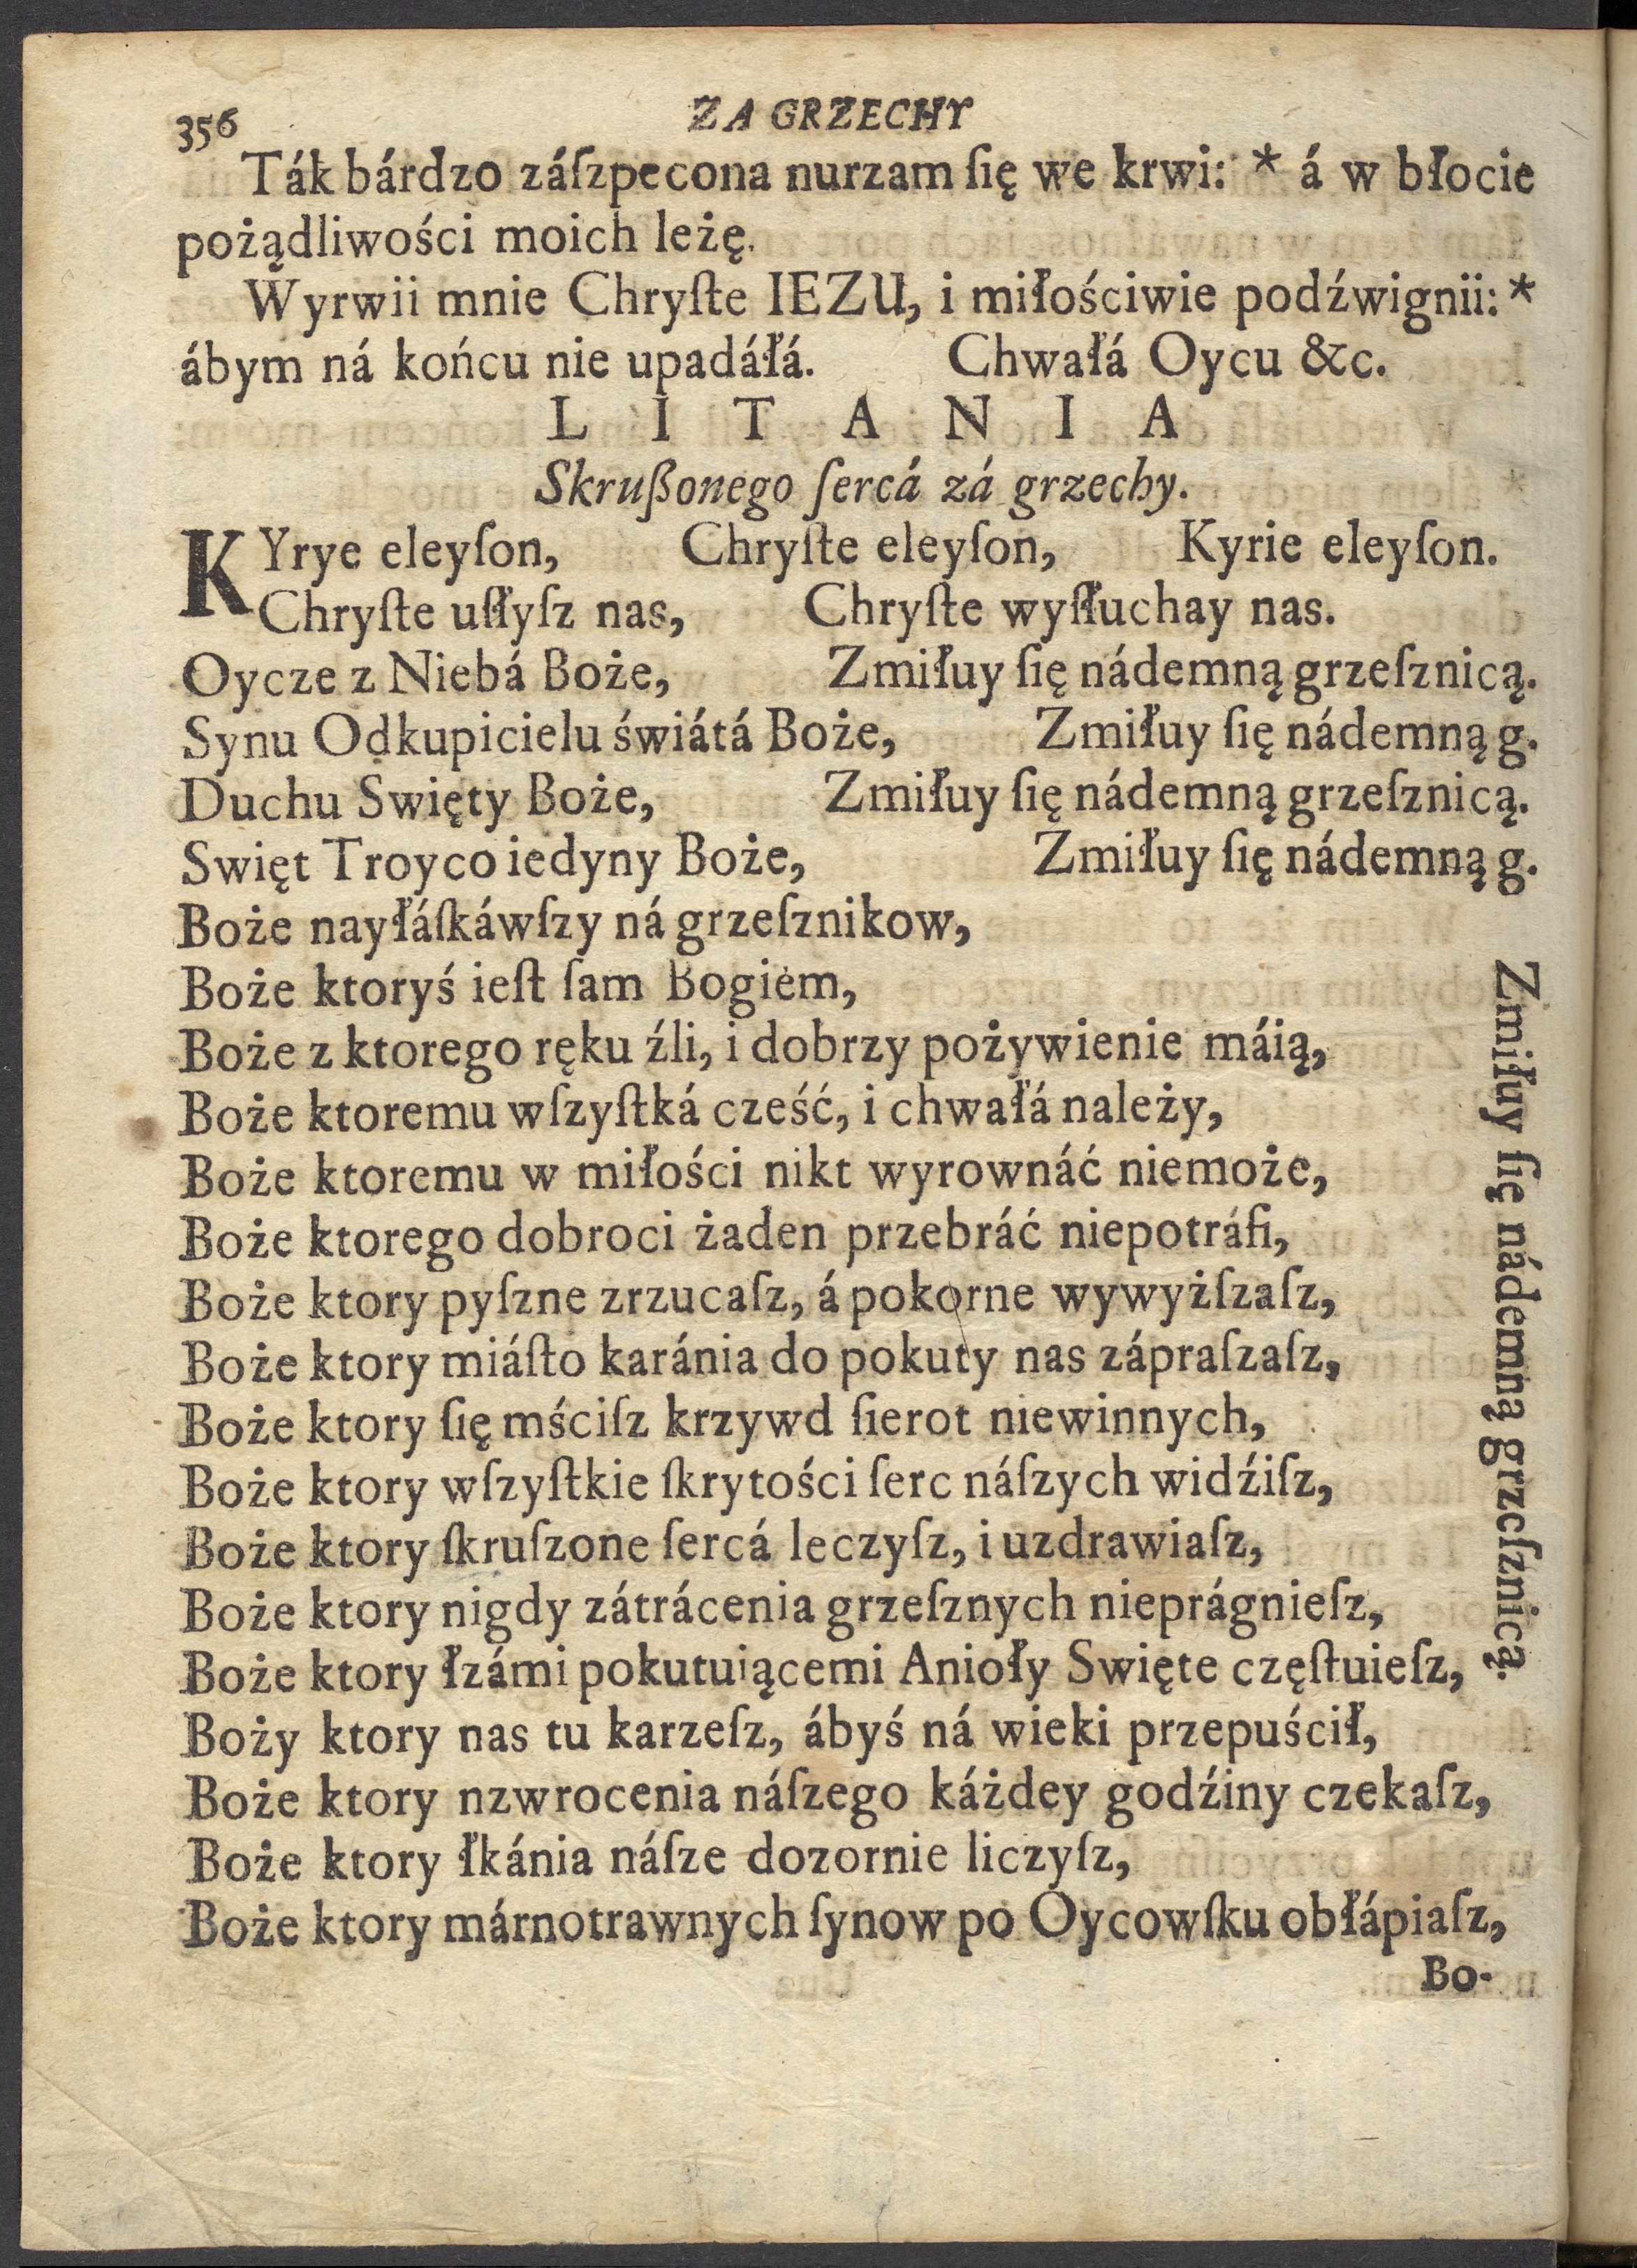 356
ZA GRZECHY
Ták bárdzo záſzpecona nurzam ſię we krwi: * á w błocie
pożądliwości moich leżę.
Wyrwii mnie Chryſte IEZU, i miłościwie podźwignii: *
ábym ná końcu nie upadáłá. Chwałá Oycu &c.
L I T A N I A
Skrußonego ſercá zá grzechy.
KYrye eleyſon, Chryſte eleyſon, Kyrie eleyſon.
Chryſte uſłyſz nas, Chryſte wyſłuchay nas.
Oycze z Niebá Boże, Zmiłuy ſię nádemną grzeſznicą.
Synu Odkupicielu świátá Boże, Zmiłuy ſię nádemną g.
Duchu Swięty Boże, Zmiłuy ſię nádemną grzeſznicą.
Swięt Troyco iedyny Boże, Zmiłuy ſię nádemną g.
Boże nayłáſkáwſzy ná grzeſznikow,
Boże ktoryś ieſt ſam Bogiem,
Boże z ktorego ręku źli, i dobrzy pożywienie máią,
Boże ktoremu wſzyſtká cześć, i chwałá należy,
Boże ktoremu w miłości nikt wyrownáć niemoże,
Boże ktorego dobroci żaden przebráć niepotráfi,
Boże ktory pyſzne zrzucaſz, á pokorne wywyżſzaſz,
Boże ktory miáſto karánia do pokuty nas zápraſzaſz,
Boże ktory ſię mściſz krzywd ſierot niewinnych,
Boże ktory wſzyſtkie ſkrytości ſerc náſzych widźiſz,
Boże ktory ſkruſzone ſercá leczyſz, i uzdrawiaſz,
Boże ktory nigdy zátrácenia grzeſznych nieprágnieſz,
Boże ktory łzámi pokutuiącemi Anioły Swięte częſtuieſz,
Boży ktory nas tu karzeſz, ábyś ná wieki przepuścił,
Boże ktory nzwrocenia náſzego káżdey godźiny czekaſz,
Boże ktory łkánia náſze dozornie liczyſz,
Boże ktory márnotrawnych ſynow po Oycowſku obłápiaſz,
Zmiłuy ſię nádemną grzeſznicą.
Bo-